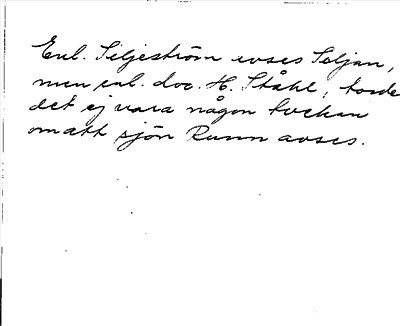 Enl. Siljeström avses Siljan,
men enl. doc. H. Ståhl, torde
det ej vara någon tvekan
om att sjön Runn avses.